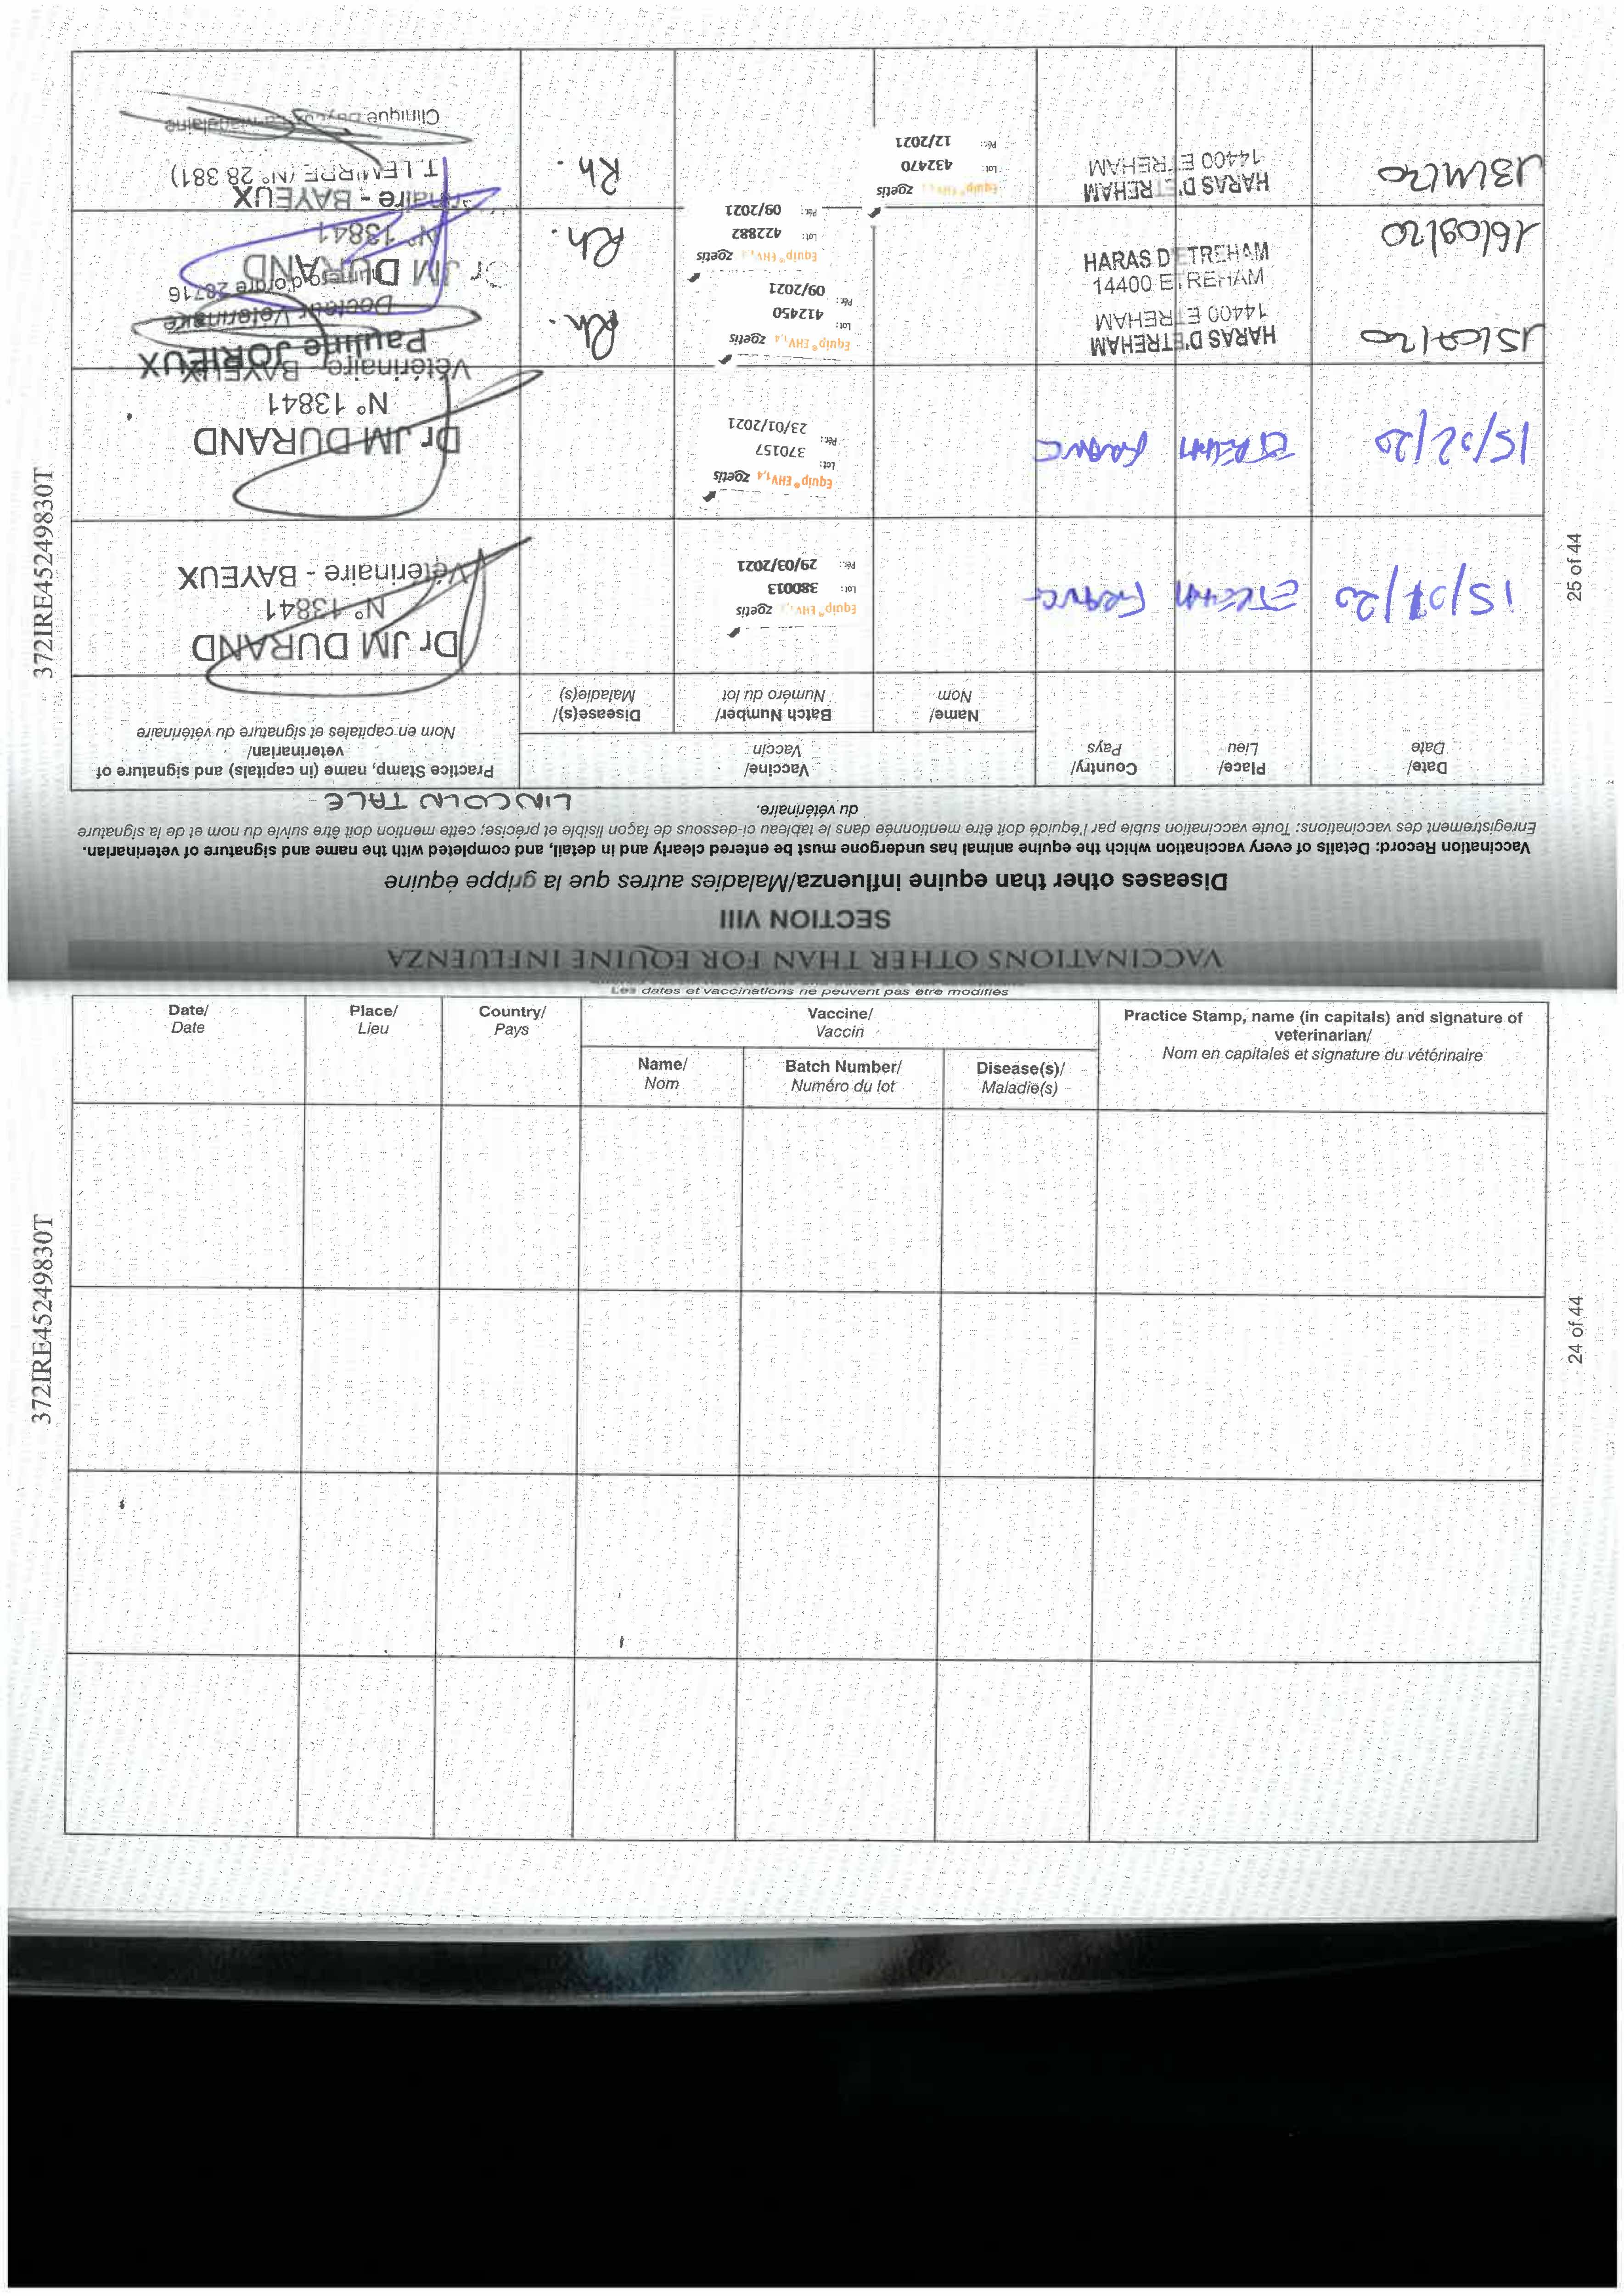 372IRE45249830T
25 of 44
VACCINATIONS OTHER THAN FOR EQUINE INFLUENZA
SECTION VIII
Diseases other than equine influenza/Maladies autres que la grippe équine
Vaccination Record: Details of every vaccination which the equine animal has undergone must be entered clearly and in detail, and completed with the name and signature of veterinarian.
Enregistrement des vaccinations: Toute vaccination subie par l'équidé doit être mentionnée dans le tableau ci-dessous de façon lisible et précise; cette mention doit être suivie du nom et de la signature
du vétérinaire.
LINCOLN TALE
Date/
Date
Place/
Lieu
Country/
Pays
Vaccine/
Vaccin
Name/
Nom
Batch Number/
Numéro du lot
Disease(s)/
Maladie(s)
Practice Stamp, name (in capitals) and signature of
veterinarian/
Nom en capitales et signature du vétérinaire
15/01/20
ETREHAM
FRANCE
Equip® EHV1,4 zoetis
Lot: 380013
Pér.: 29/03/2021
Dr JM DURAND
N° 13841
Vétérinaire - BAYEUX
15/02/20
ETREHAM
FRANCE
Equip® EHV1,4 zoetis
Lot: 370157
Pér.: 23/01/2021
Dr JM DURAND
N° 13841
Vétérinaire - BAYEUX
15/07/20
HARAS D'ETREHAM
14400 ETREHAM
Equip® EHV1,4 zoetis
Lot: 412450
Pér.: 09/2021
Rh.
Pauline JORIEUX
Docteur Vétérinaire
numéro d'ordre 28716
16/09/20
HARAS D'ETREHAM
14400 ETREHAM
Equip® EHV1,4 zoetis
Lot: 422882
Pér.: 09/2021
Rh.
Dr JM DURAND
N° 13841
Vétérinaire - BAYEUX
13/11/20
HARAS D'ETREHAM
14400 ETREHAM
Equip® EHV1,4 zoetis
Lot: 432470
Pér.: 12/2021
Rh.
T. LEMIRRE (N° 28 381)
Clinique
Les dates et vaccinations ne peuvent pas être modifiés
Date/
Date
Place/
Lieu
Country/
Pays
Vaccine/
Vaccin
Name/
Nom
Batch Number/
Numéro du lot
Disease(s)/
Maladie(s)
Practice Stamp, name (in capitals) and signature of
veterinarian/
Nom en capitales et signature du vétérinaire
372IRE45249830T
24 of 44